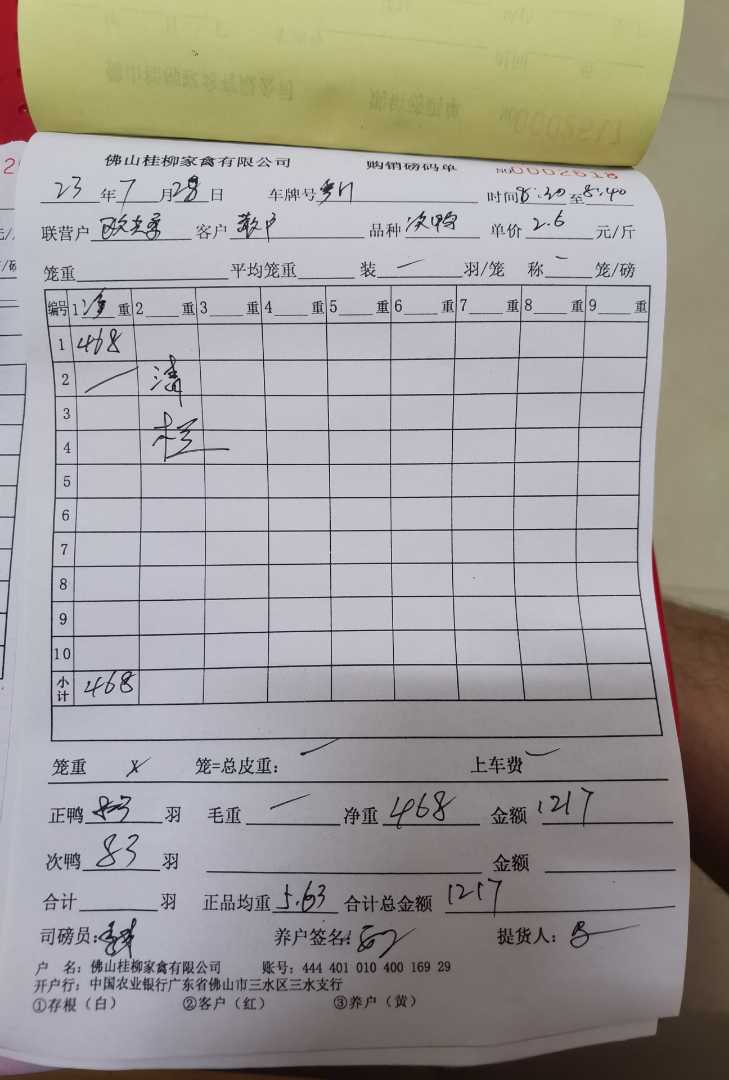 佛山桂柳家禽有限公司 购销磅码单 №0002518
23年7月28日 车牌号 时间8:30至8:40
联营户 客户散户 品种次鸭 单价2.6元/斤
笼重 平均笼重 装一羽/笼 称一笼/磅
编号 1净重 2重 3重 4重 5重 6重 7重 8重 9重
1 468
2 一 清
3
4 栏
5
6
7
8
9
10
小计 468
笼重 x 笼=总皮重： 一 上车费 一
正鸭 羽 毛重 一 净重468 金额1217
次鸭83羽 金额
合计 羽 正品均重5.63 合计总金额1217
司磅员： 养户签名： 提货人：
户 名：佛山桂柳家禽有限公司 账号：444 401 010 400 169 29
开户行：中国农业银行广东省佛山市三水区三水支行
①存根（白） ②客户（红） ③养户（黄）